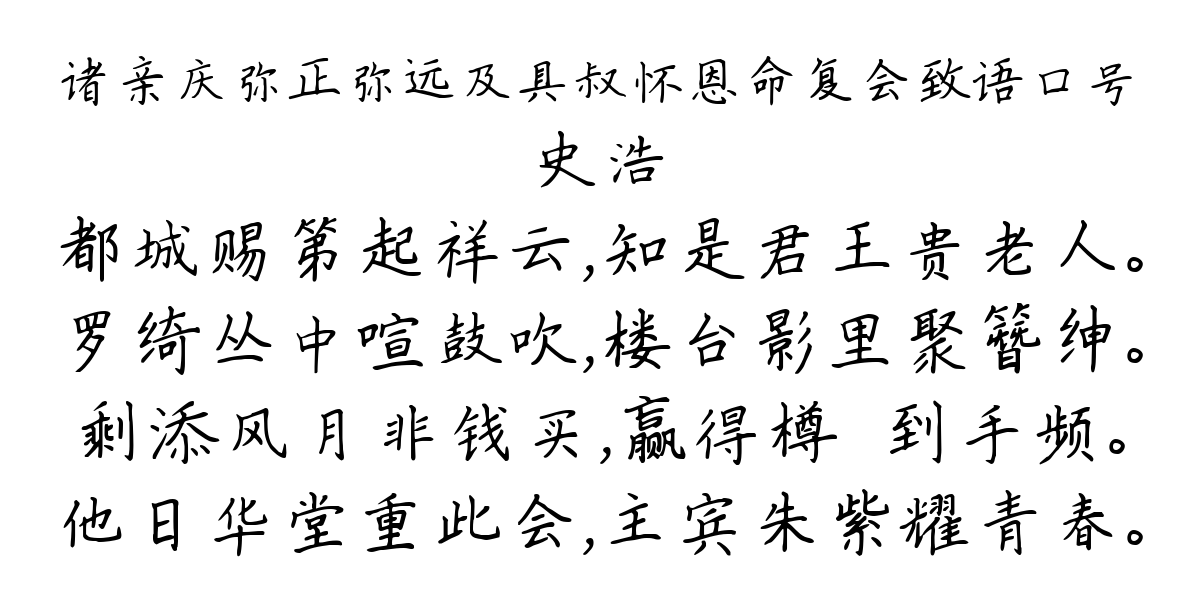 诸亲庆弥正弥远及具叔怀恩命复会致语口号
史浩
都城赐第起祥云,知是君王贵老人。
罗绮丛中喧鼓吹,楼台影里聚簪绅。
剩添风月非钱买,赢得樽 到手频。
他日华堂重此会,主宾朱紫耀青春。